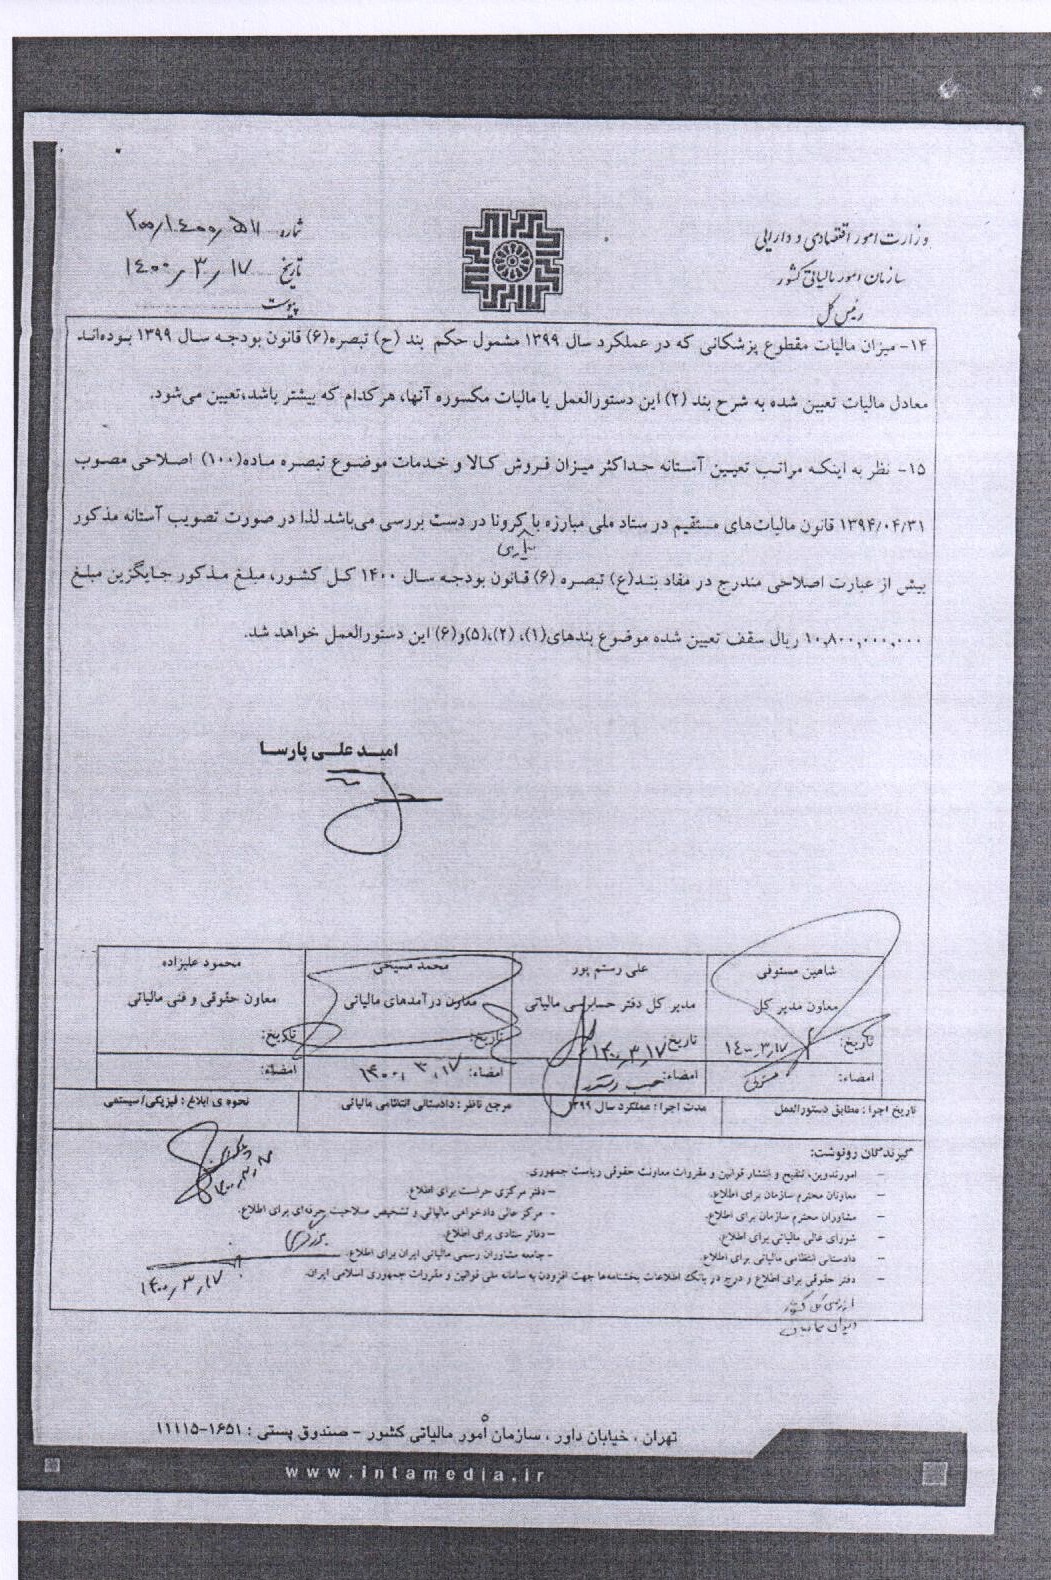 وزارت امور اقتصادی و دارایی
سازمان امور مالیاتی کشور
رئیس کل
شماره ۲۰۰/۱۴۰۰/۵۱۱
تاریخ ۱۴۰۰/۳/۱۷
پیوست
۱۴- میزان مالیات مقطوع پزشکانی که در عملکرد سال ۱۳۹۹ مشمول حکم بند (ح) تبصره(۶) قانون بودجه سال ۱۳۹۹ بوده‌اند
معادل مالیات تعیین شده به شرح بند (۲) این دستورالعمل یا مالیات مکسوره آنها، هر کدام که بیشتر باشد،تعیین می‌شود.
۱۵- نظر به اینکه مراتب تعیین آستانه حداکثر میزان فروش کالا و خدمات موضوع تبصره ماده(۱۰۰) اصلاحی مصوب
۱۳۹۴/۰۴/۳۱ قانون مالیات‌های مستقیم در ستاد ملی مبارزه با کرونا در دست بررسی می‌باشد لذا در صورت تصویب آستانه مذکور
بیش از عبارت اصلاحی مندرج در مفاد بند(ع) تبصره (۶) قانون بودجه سال ۱۴۰۰ کل کشور، مبلغ مذکور جایگزین مبلغ
۱۰,۸۰۰,۰۰۰,۰۰۰ ریال سقف تعیین شده موضوع بندهای(۱)، (۲)،(۵)و(۶) این دستورالعمل خواهد شد.
امید علی پارسا
شاهین مستوفی
معاون مدیر کل
تاریخ: ۱۴۰۰/۳/۱۷
امضاء:
علی رستم پور
مدیر کل دفتر حسابرسی مالیاتی
تاریخ: ۱۴۰۰/۳/۱۷
امضاء:
محمد مسیحی
معاون درآمدهای مالیاتی
تاریخ:
امضاء: ۱۴۰۰/۳/۱۷
محمود علیزاده
معاون حقوقی و فنی مالیاتی
تاریخ:
امضاء:
تاریخ اجرا : مطابق دستورالعمل
مدت اجرا : عملکرد سال ۱۳۹۹
مرجع ناظر : دادستانی انتظامی مالیاتی
نحوه ی ابلاغ : فیزیکی/سیستمی
گیرندگان رونوشت:
– امورتدوین، تنقیح و انتشار قوانین و مقررات معاونت حقوقی ریاست جمهوری.
– معاونان محترم سازمان برای اطلاع.
– دفتر مرکزی حراست برای اطلاع.
– مشاوران محترم سازمان برای اطلاع.
– مرکز عالی دادخواهی مالیاتی و تشخیص صلاحیت حرفه‌ای برای اطلاع.
– شورای عالی مالیاتی برای اطلاع.
– دفاتر ستادی برای اطلاع.
– دادستانی انتظامی مالیاتی برای اطلاع.
– جامعه مشاوران رسمی مالیاتی ایران برای اطلاع.
– دفتر حقوقی برای اطلاع و درج در بانک اطلاعات بخشنامه‌ها جهت افزودن به سامانه ملی قوانین و مقررات جمهوری اسلامی ایران.
۱۴۰۰/۳/۱۷
۵
تهران ، خیابان داور ، سازمان أمور مالیاتی کشور – صندوق پستی : ۱۶۵۱-۱۱۱۱۵
www.intamedia.ir